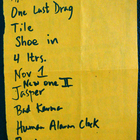 One Last Drag
Tile
Shoe in
4 Hrs.
Nov 1
New one II
Jasper
Bad Karma
Human Alarm Clock